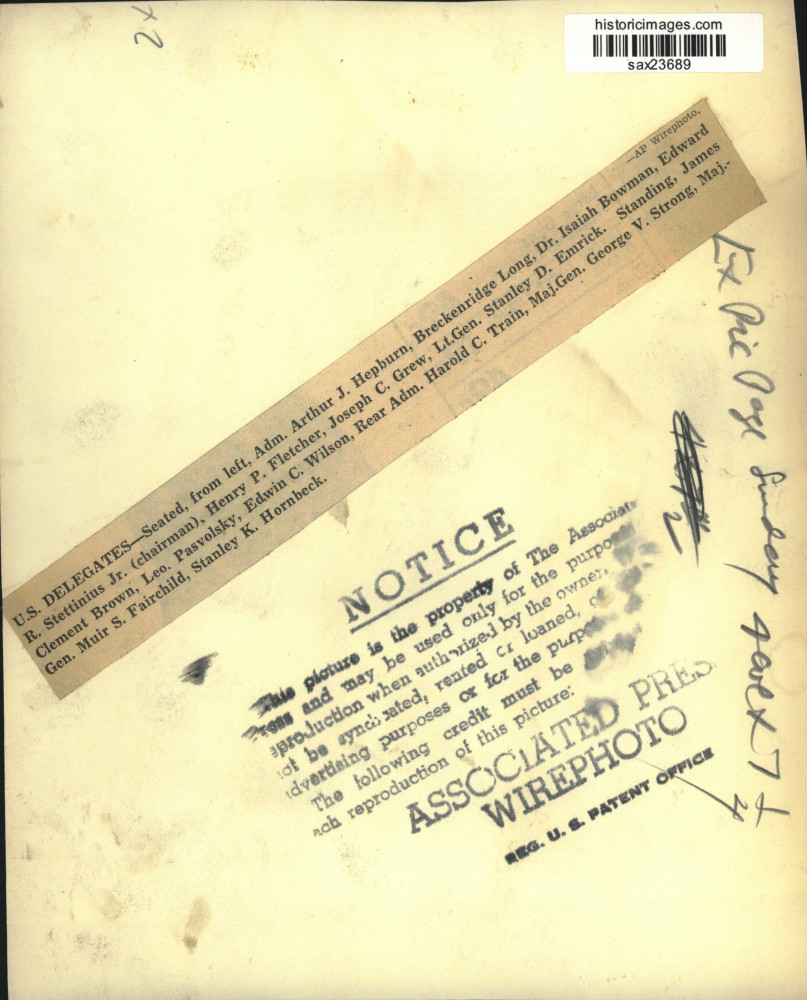 historicimages.com
sax23689
—AP Wirephoto.
U.S. DELEGATES—Seated, from left, Adm. Arthur J. Hepburn, Breckenridge Long, Dr. Isaiah Bowman, Edward
R. Stettinius Jr. (chairman), Henry P. Fletcher, Joseph C. Grew, Lt.Gen. Stanley D. Emrick. Standing, James
Clement Brown, Leo. Pasvolsky, Edwin C. Wilson, Rear Adm. Harold C. Train, Maj.Gen. George V. Strong, Maj.-
Gen. Muir S. Fairchild, Stanley K. Hornbeck.
NOTICE
This picture is the property of The Associate
ress and may be used only for the purpo
eproduction when authorized by the owner,
ot be syndicated, rented or loaned,
dvertising purposes or for the purpo
The following credit must be
ach reproduction of this picture:
ASSOCIATED PRES
WIREPHOTO
REG. U. S. PATENT OFFICE
Ex Pic Page Sunday
2